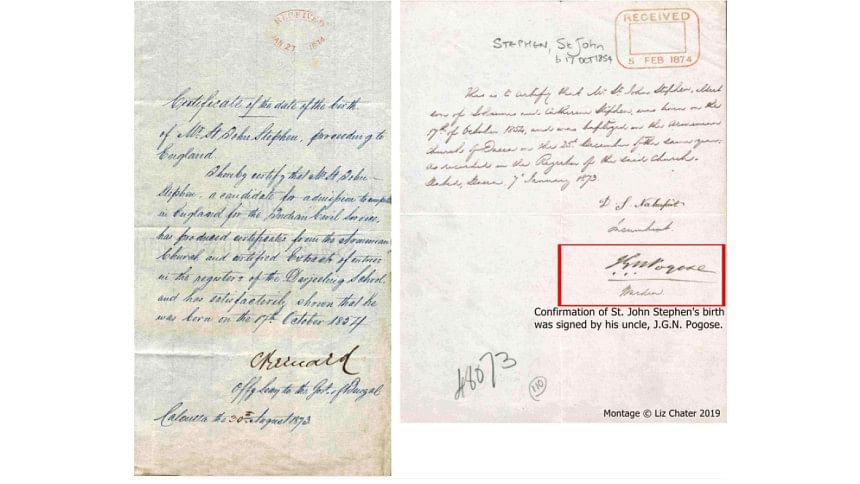 RECEIVED
JAN 27 1874
Certificate of the date of the birth
of Mr. St. John Stephen, proceeding to
England.
I hereby certify that Mr. St. John
Stephen, a candidate for admission to compete
in England for the Indian Civil Service,
has produced certificates from the Armenian
Church and certified Extracts of entries
in the registers of the Darjeeling School,
and has satisfactorily shown that he
was born on the 17th October 1854
C Bernard
Offg Secy to the Govt. of Bengal
Calcutta the 30th August 1873
STEPHEN, St John
b 17 OCT 1854
RECEIVED
5 FEB 1874
This is to certify that Mr St John Stephen,
son of and Stephen, was born on the
17th of October 1854, and was baptized in the Armenian
Church of Dacca on the 25th December of the same year,
as recorded in the Register of the said Church.
Dated, Dacca, 7 January 1873.
J.G.N. Pogose
Warden
Confirmation of St. John Stephen's birth
was signed by his uncle, J.G.N. Pogose.
48073
110
Montage © Liz Chater 2019